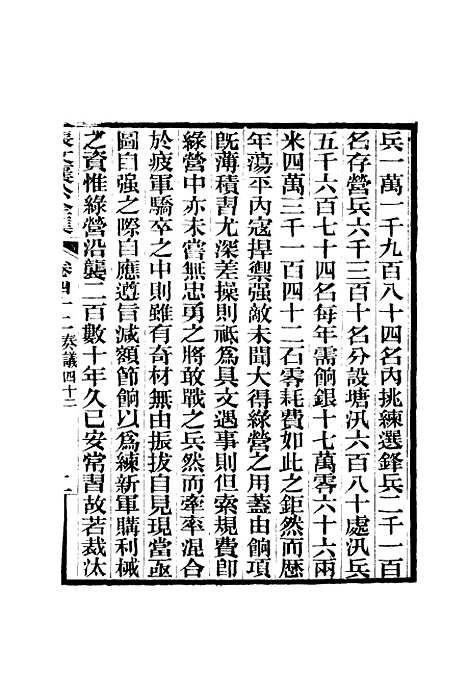 兵一萬一千九百八十四名內挑練選鋒兵二千一百
名存營兵六千三百十名分設塘汛六百八十處汛兵
五千六百七十四名每年需餉銀十七萬零六十六兩
米四萬三千一百四十二石零耗費如此之鉅然而歷
年蕩平內寇捍禦強敵未聞大得綠營之用蓋由餉項
旣薄積習尤深差操則祗爲具文遇事則但索規費卽
綠營中亦未嘗無忠勇之將敢戰之兵然而牽率混合
於疲軍驕卒之中則雖有奇材無由振拔自見現當亟
圖自强之際自應遵旨減額節餉以爲練新軍購利械
之資惟綠營沿襲二百數十年久已安常習故若裁汰
張文襄公全集
卷四十二奏議四十二
二